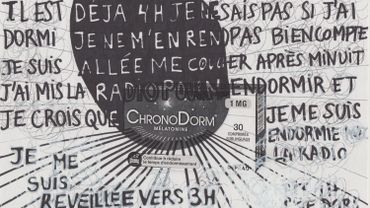 IL EST DÉJÀ 4H JE NE SAIS PAS SI J'AI
DORMI JE NE M'EN REND PAS BIEN COMPTE
JE SUIS ALLÉE ME COUCHER APRÈS MINUIT
J'AI MIS LA RADIO POUR M'ENDORMIR ET
JE CROIS QUE JE ME SUIS
CHRONODORM
MÉLATONINE
1 MG
30
COMPRIMÉS
SUBLINGUAUX
ENDORMIE
LA RADIO
Contribue à réduire
le temps d'endormissement
JE ME
SUIS
RÉVEILLÉE VERS 3H